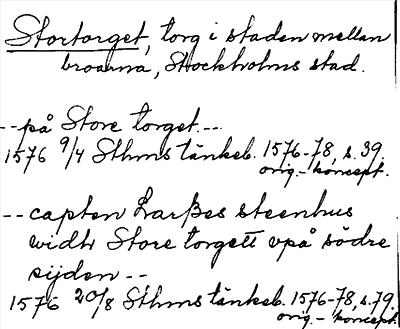 Stortorget, torg i staden mellan
broarna, Stockholms stad.
--på Store torget.--
1576 9/4 Sthms tänkeb. 1576-78, s. 39.
orig.-koncept.
-- capten Larßes steenhus
widh Store torgett vpå södre
sijden --
1576 20/8 Sthms tänkeb. 1576-78, s. 79.
orig.- koncept.